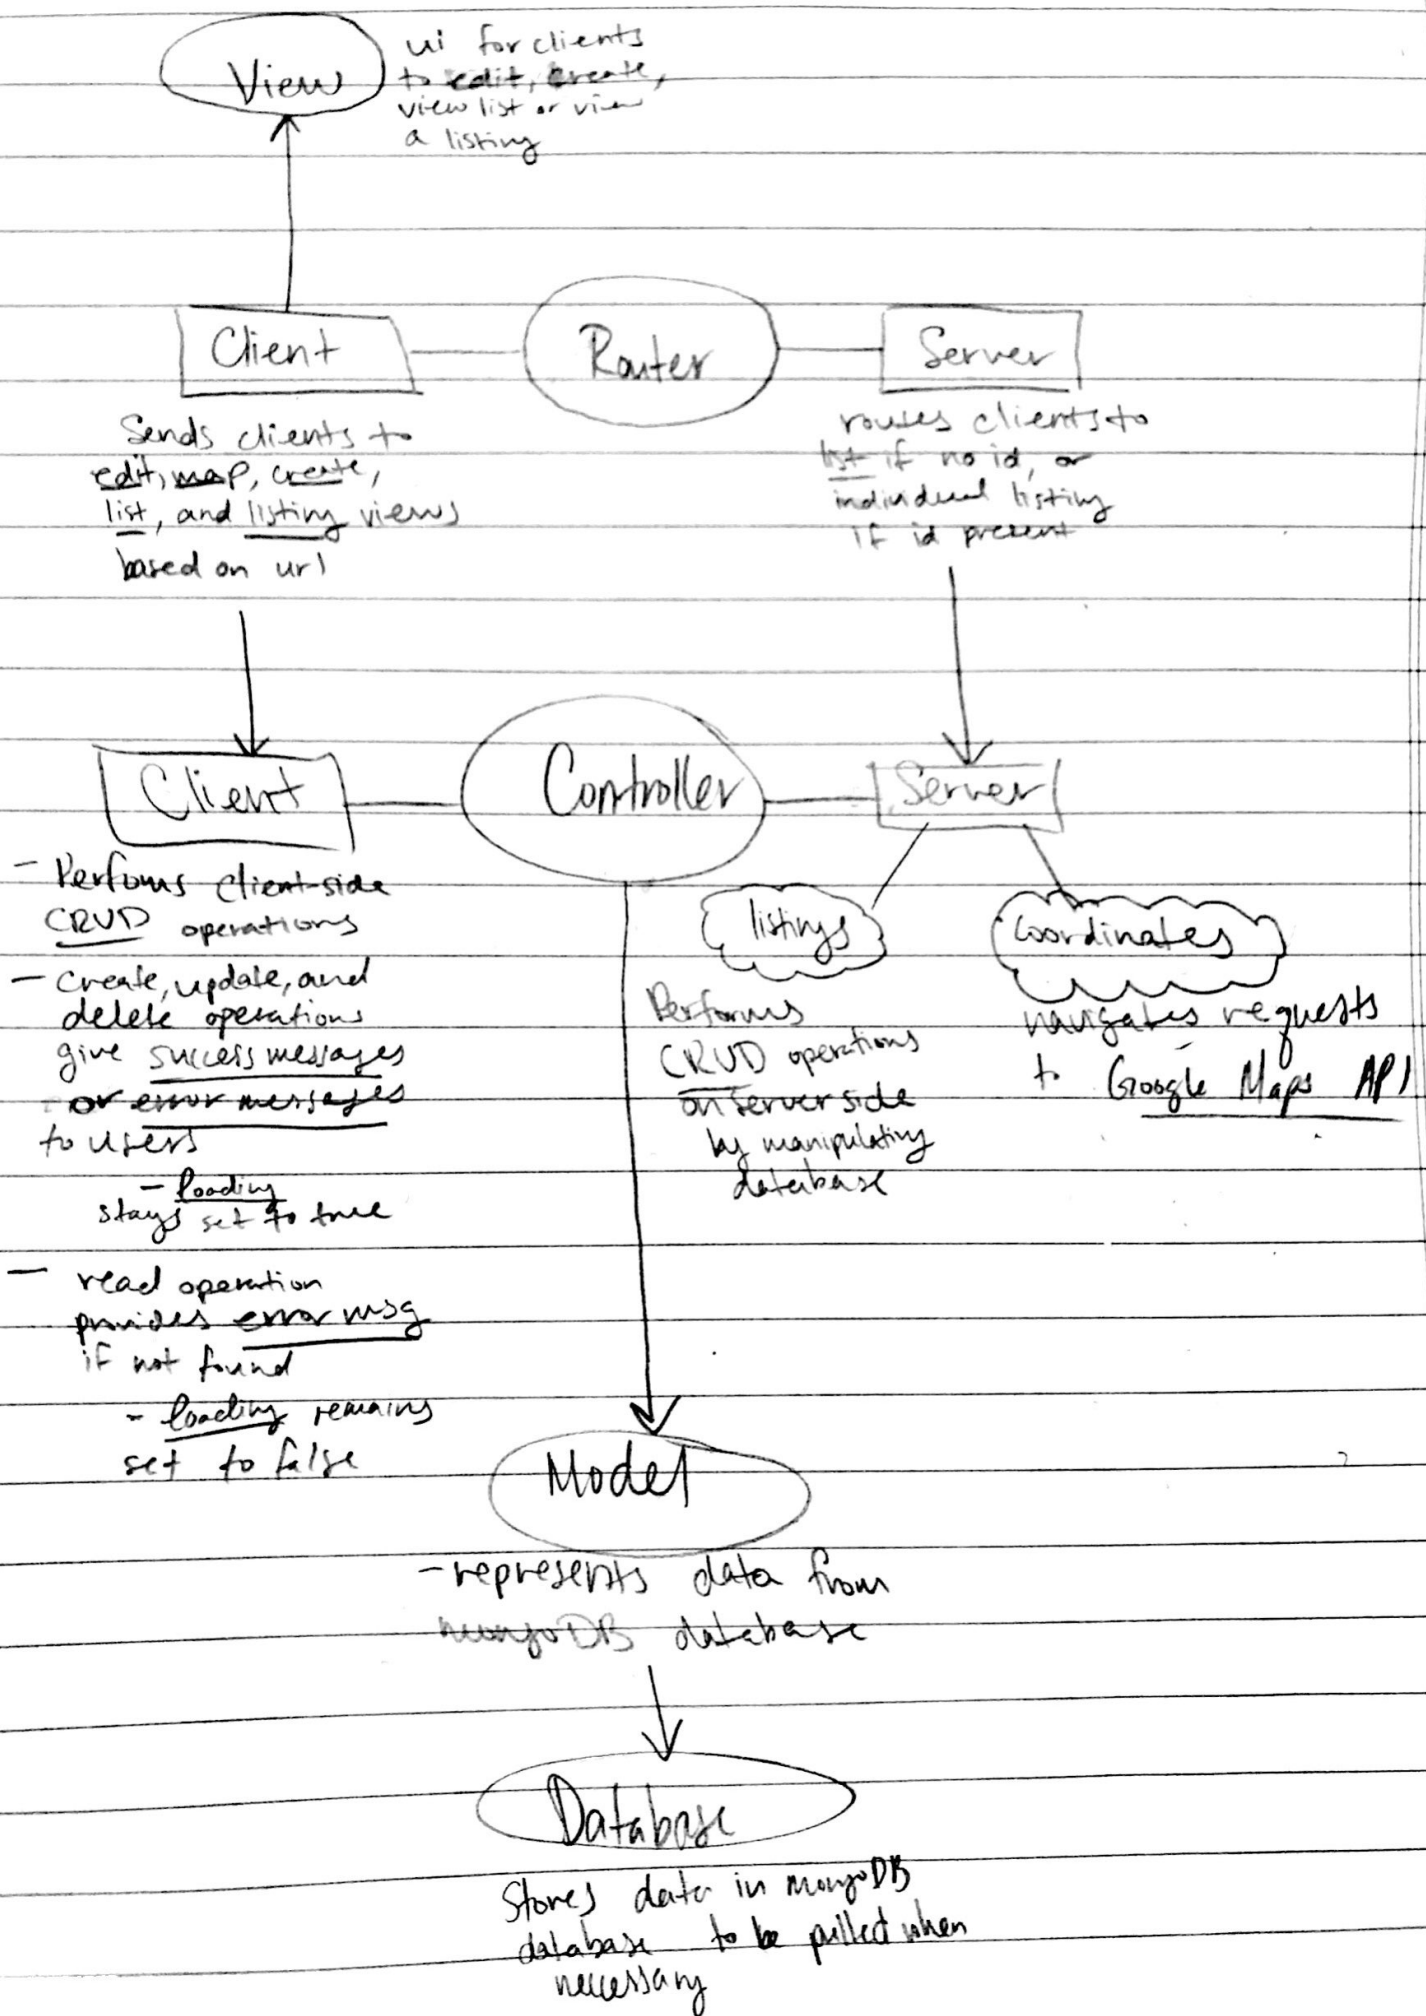 View
ui for clients
to edit, create,
view list or view
a listing
Client
Router
Server
Sends clients to
edit, map, create,
list, and listing views
based on url
routes clients to
list if no id, or
individual listing
if id present
Client
Controller
Server
- Performs client-side
CRUD operations
- create, update, and
delete operations
give success messages
or error messages
to users
- loading
stays set to true
- read operation
provides error msg
if not found
- loading remains
set to false
listings
Performs
CRUD operations
on server side
by manipulating
database
coordinates
navigates requests
to Google Maps API
Model
- represents data from
mongoDB database
Database
Stores data in mongoDB
database to be pulled when
neccessary